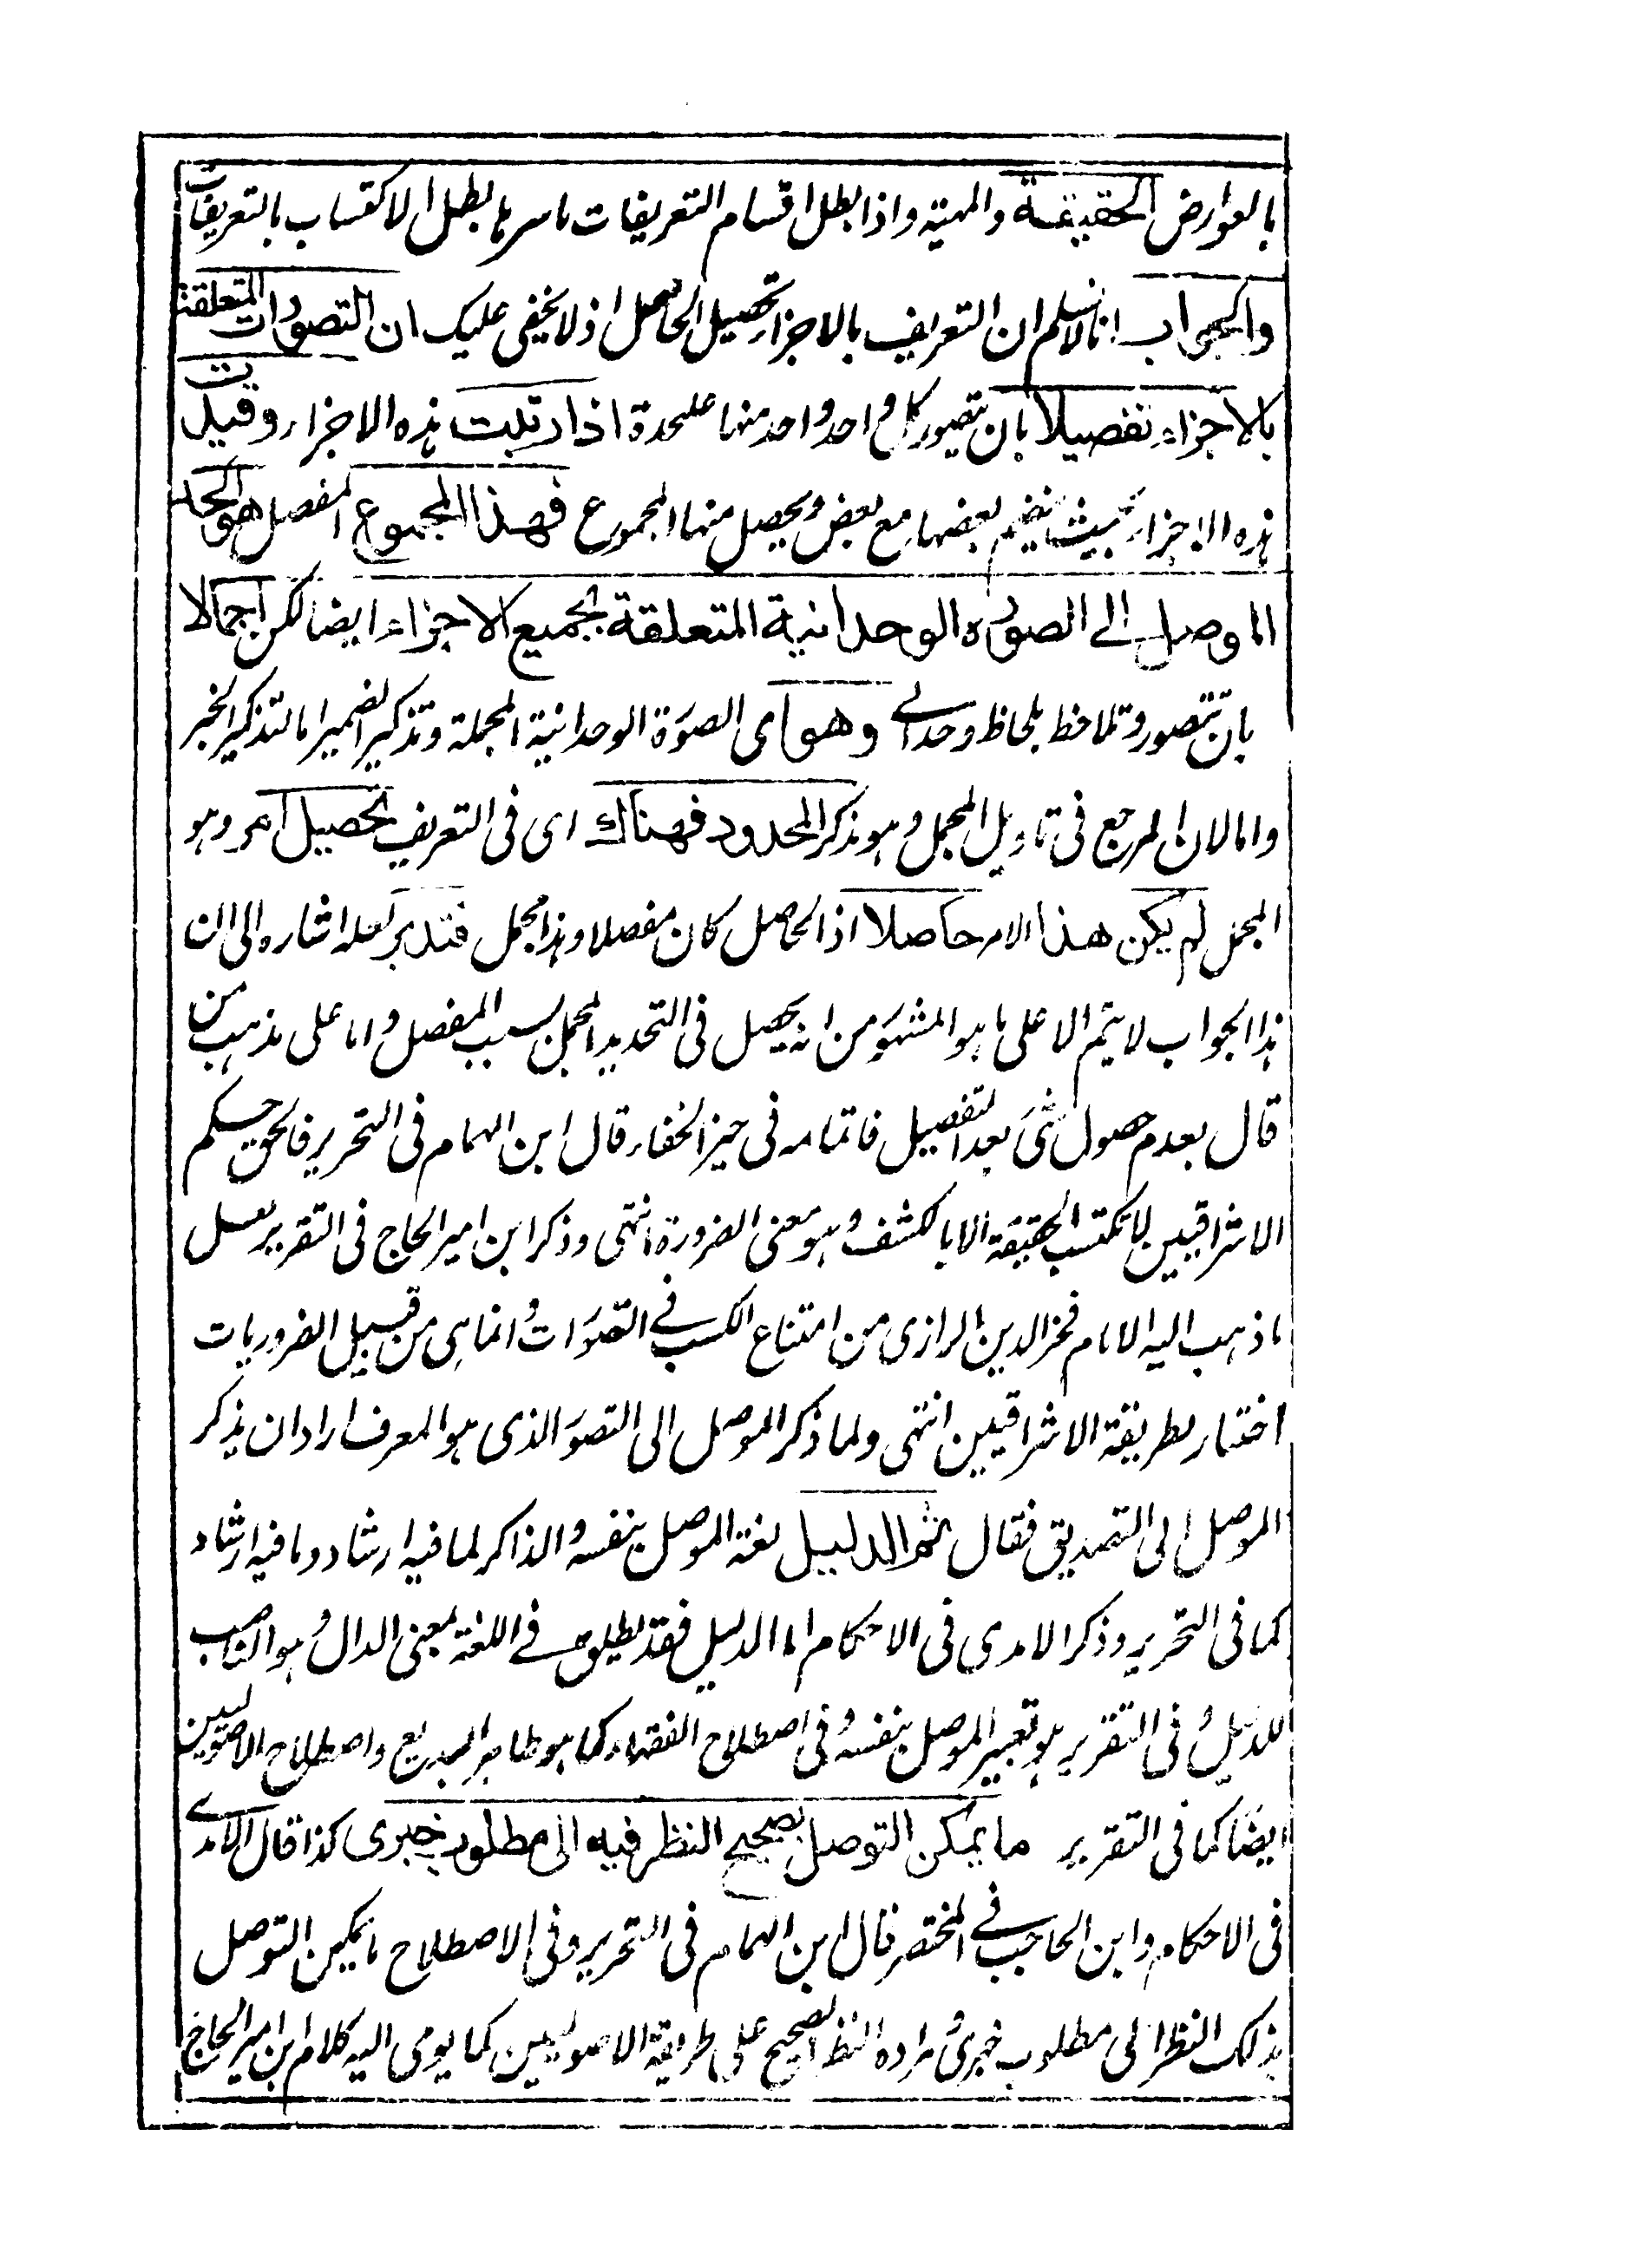 بالعوارض الحقيقة والمهية واذا بطل اقسام التعريفات باسرها بطل الاكتساب بالتعريفات
والجواب انا لا نسلم ان التعريف بالاجزاء تحصيل الحاصل اذ لا يخفى عليك ان التصورات المتعلقة
بالاجزاء تفصيلا بان تتصور كل واحد واحد منها علىحدة اذا رتبت هذه الاجزاء وقيدت
هذه الاجزاء بحيث ينضم بعضها مع بعض ويحصل منها المجموع فهذا المجموع المفصل هو الحد
الموصل الى الصورة الوحدانية المتعلقة بجميع الاجزاء ايضا لكن اجمالا
بان تتصور وتلاحظ بلحاظ وحدانى وهو اى الصورة الوحدانية المجملة وتذكير الضمير اما لتذكير الخبر
واما لان المرجع فى تاويل المجمل وهو مذكر المحدود فهناك اى فى التعريف تحصيل امر وهو
المجمل لم يكن هذا الامر حاصلا اذ الحاصل كان مفصلا وهذا مجمل فتدبر لعله اشاره الى ان
هذا الجواب لا يتم الا على ما هو المشهور من انه يحصل فى التحديد المجمل بسبب المفصل واما على مذهب من
قال بعدم حصول شئ بعد التفصيل فاتمامه فى حيز الخفاء قال ابن الهمام فى التحرير فالحق حكم
الاشراقيين لا تكتسب الحقيقة الا بالكشف وهو معنى الضرورة انتهى وذكر ابن امير الحاج فى التقرير لعل
ما ذهب اليه الامام فخر الدين الرازى من امتناع الكسب فى التصورات وانما هى من قبيل الضروريات
اختيار لطريقة الاشراقيين انتهى ولما ذكر الموصل الى التصور الذى هو المعرف اراد ان يذكر
الموصل الى التصديق فقال ثم الدليل لغة الموصل بنفسه والذاكر لما فيه ارشاد وما فيه ارشاد
كما فى التحرير وذكر الامدى فى الاحكام اما الدليل فقد يطلق فى اللغة بمعنى الدال وهو الناصب
للدليل وفى التقرير هو تعبير الموصل بنفسه وفى اصطلاح الفقهاء كما هو ظاهر البديع واصطلاح الاصوليين
ايضا كما فى التقرير ما يمكن التوصل بصحيح النظر فيه الى مطلوب خبرى كذا قال الامدى
فى الاحكام وابن الحاجب فى المختصر قال ابن الهمام فى التحرير وفى الاصطلاح ما يمكن التوصل
بذلك النظر الى مطلوب خبرى مراده النظر الصحيح على طريقة الاصوليين كما يومى اليه كلام ابن امير الحاج